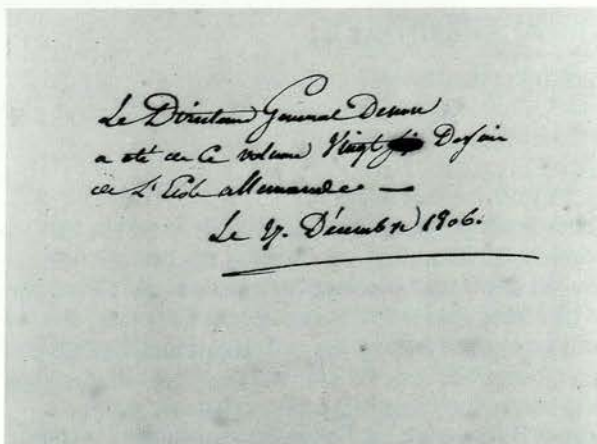 Le Directeur General Denon
a oté de Ce volume Vingt Dessin
de L'Ecole allemande —
Le 27. Décembre 1806.